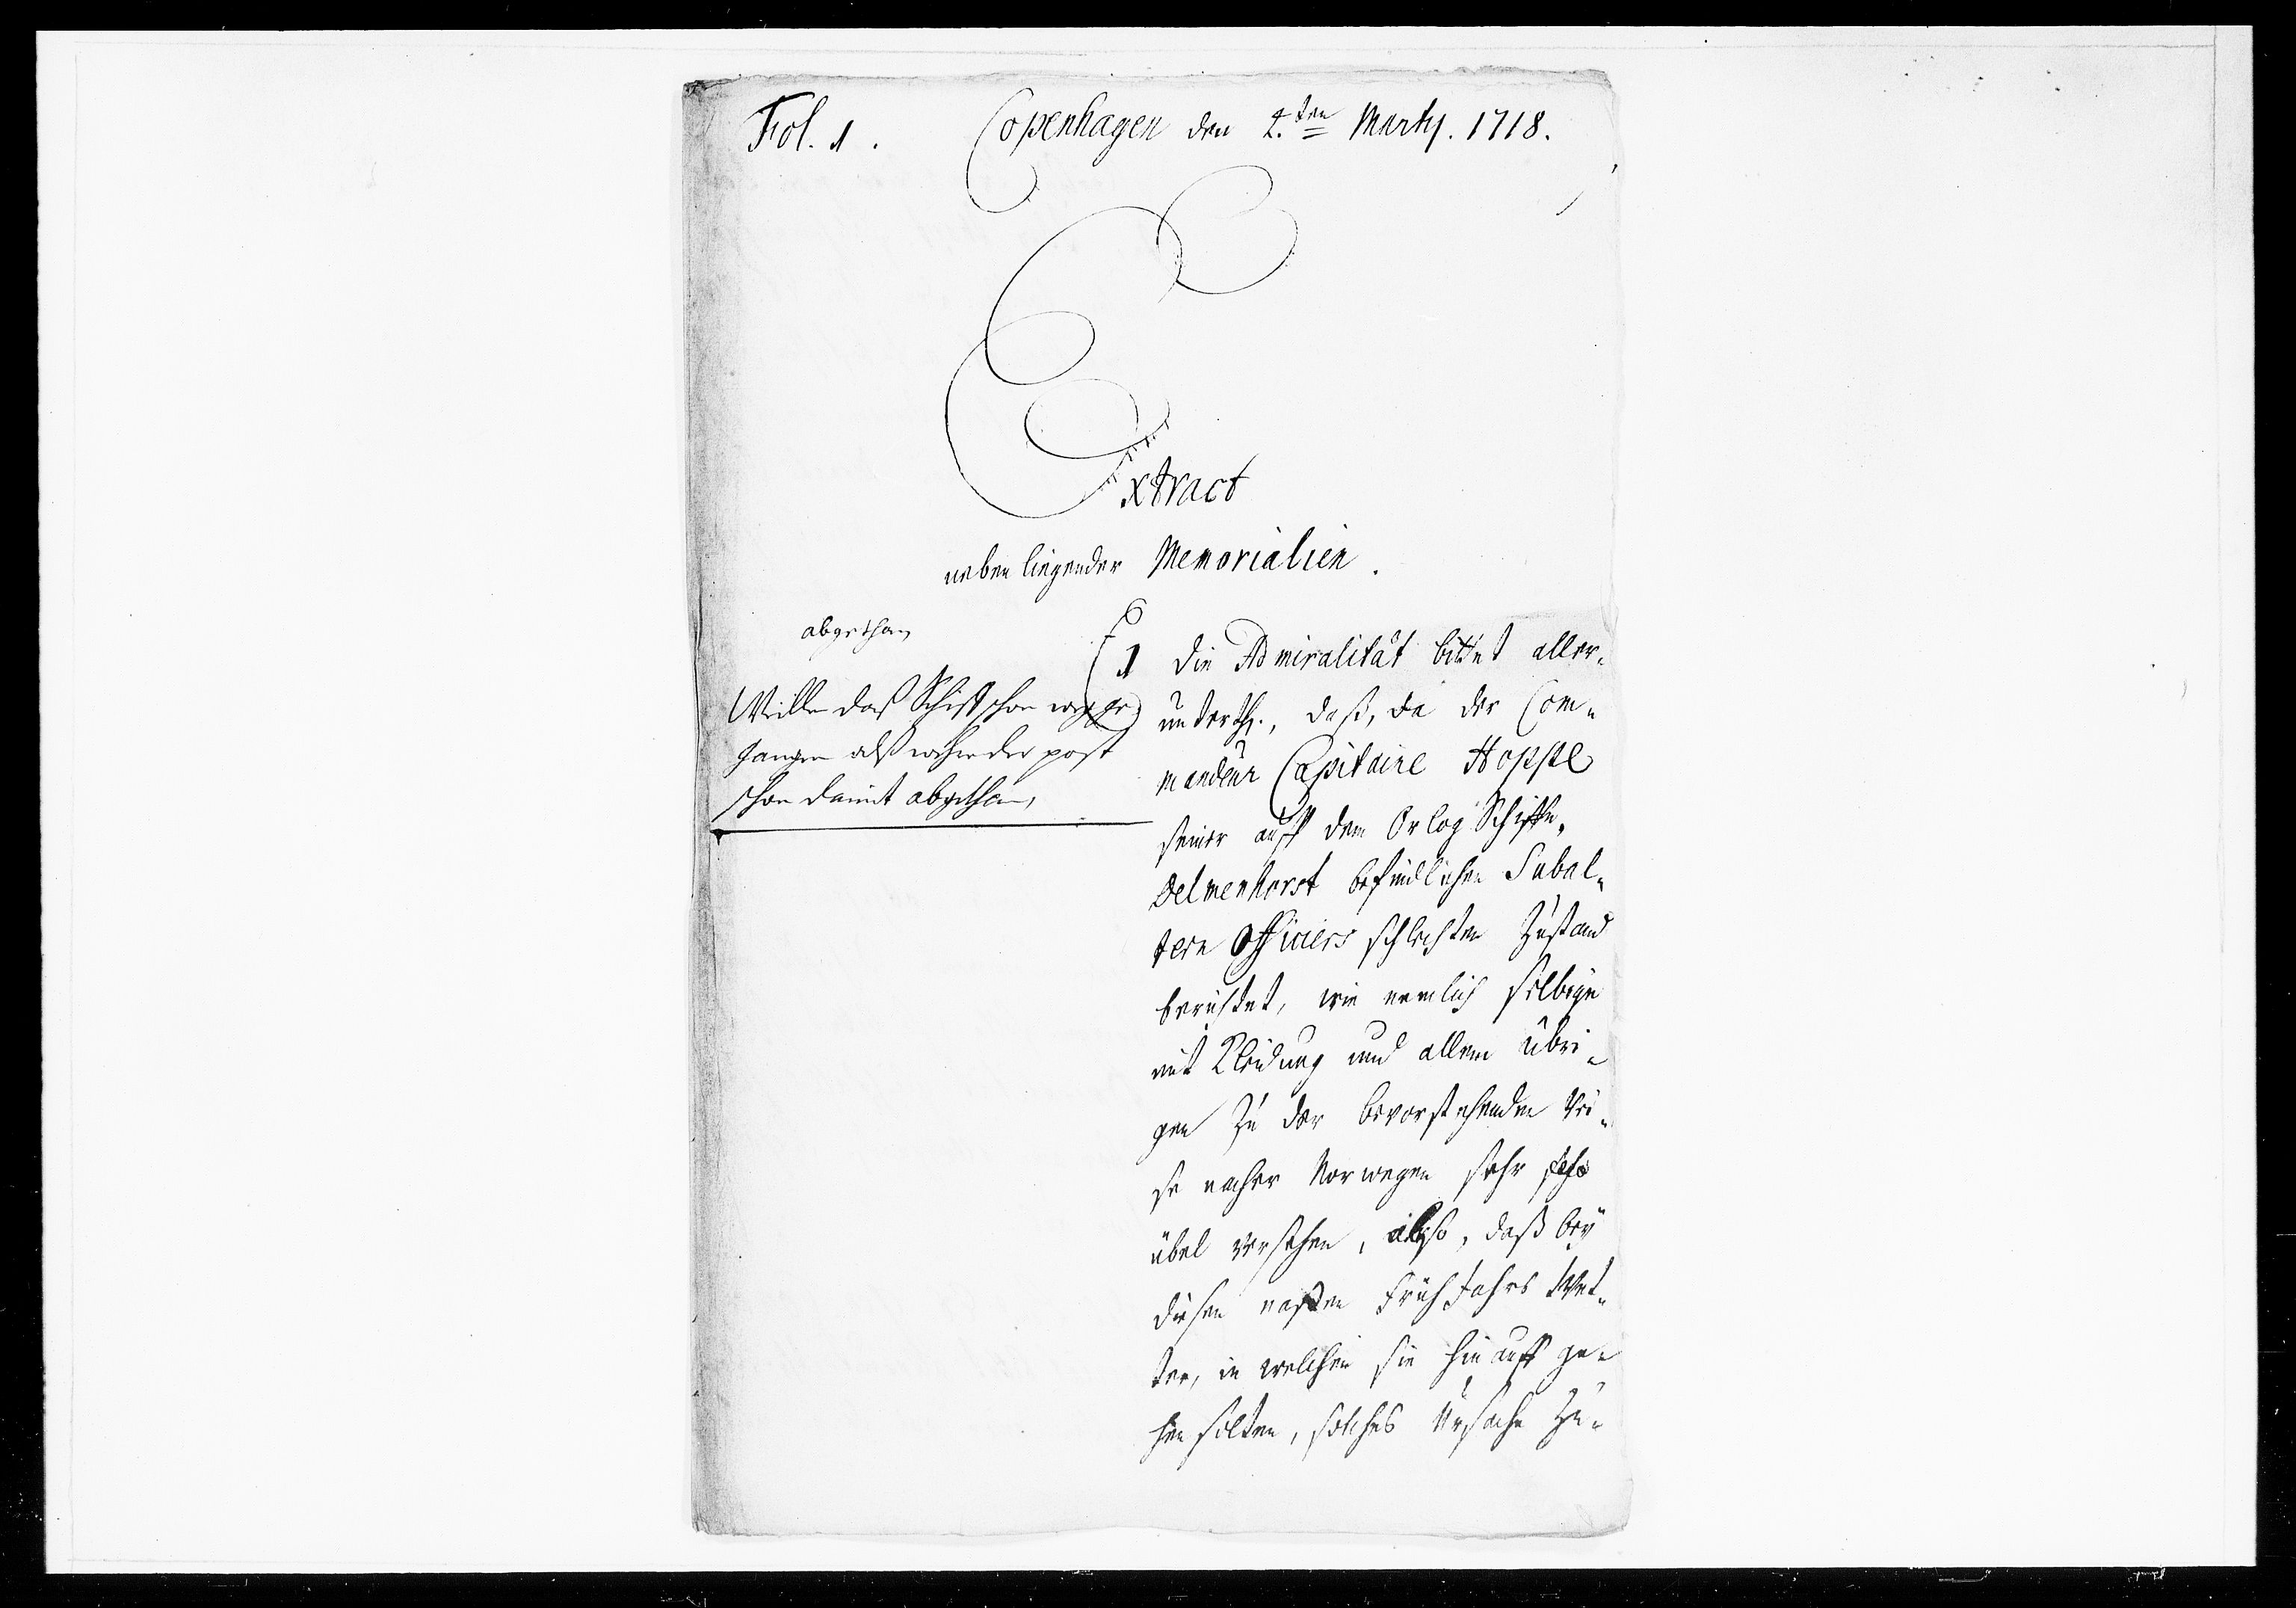 Fol. 1.
Copenhagen den 2.ten Martij. 1718.
Extract
nebenliegender Memorialien.
abgethan
Weillen daß Schiff schon wegge
gangen alß ist der post
schon damit abgethan,
1 die Admiralität bittet aller-
unterth., daß, da der Com-
mandeur Capitaine Hoppe
seiner auff dem Orlog Schiffe,
Delmenhorst befindlichen Subal-
tern Officiers schlechten Zustand
berichtet, wie nemlich selbige
mit Kleidung und allem übri-
gen zu der bevorstehenden Rei-
se nacher Norwegen sehr
übel versehen, also, daß bey
diesen naßen FrühJahrs Wet-
ter, in welchen sie hinauff ge-
hen solten, solches Ursache zu-